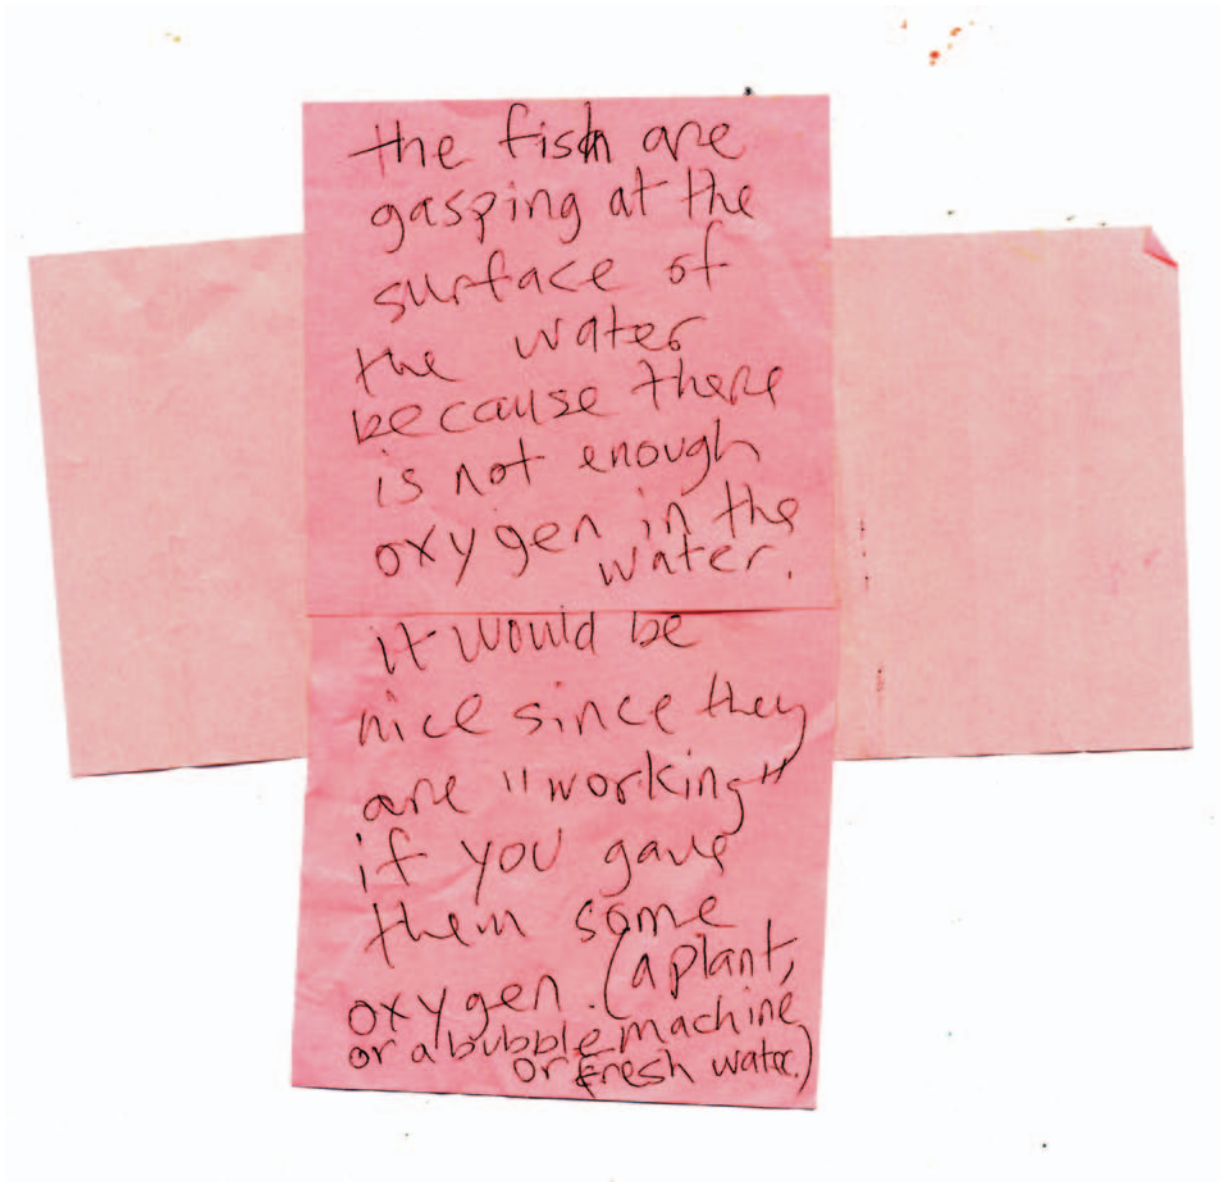 the fish are
gasping at the
surface of
the water
because there
is not enough
oxygen in the
water.
it would be
nice since they
are "working"
if you gave
them some
oxygen. (a plant,
or a bubble machine
or fresh water.)